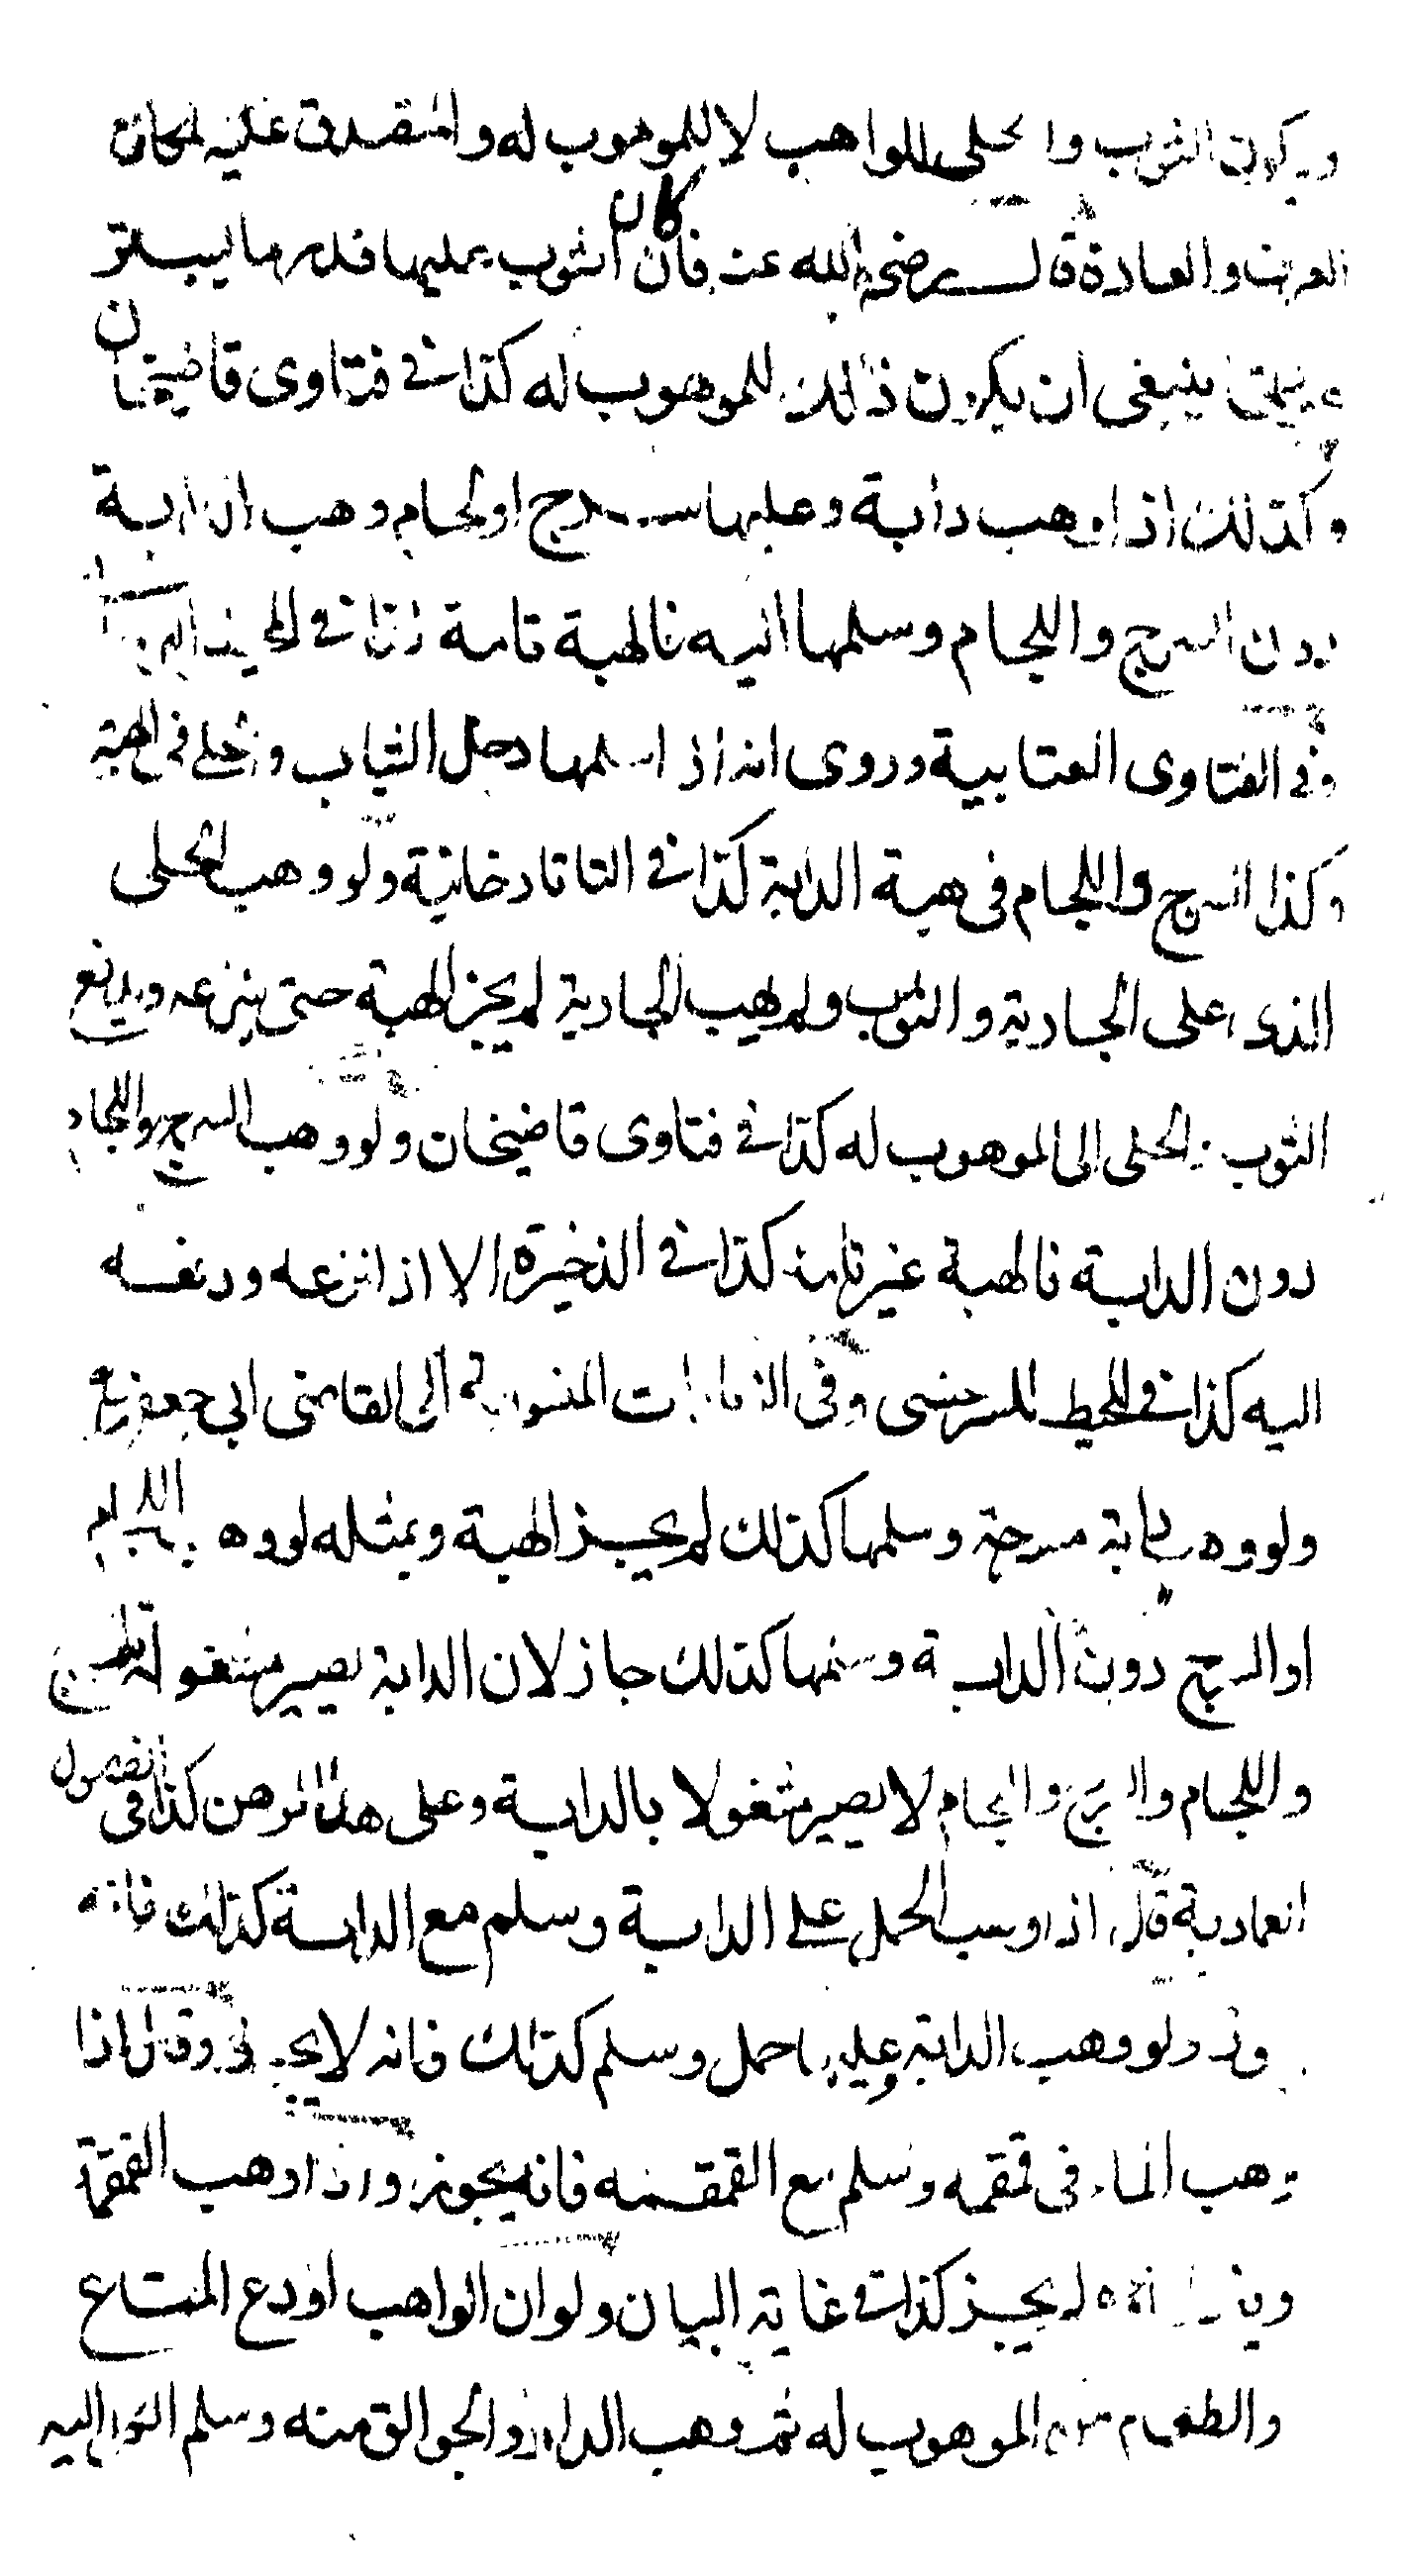 ويكون الثوب والحلى للواهب لا للموهوب له والمتصدق عليه لمكان
العرف والعادة قال رضى الله عنه فان كان الثوب عليها قدر ما يستر
عورتها ينبغى ان يكون ذلك للموهوب له كذا فى فتاوى قاضيخان
وكذلك اذا وهب دابة وعليها سرج او لجام وهب الدابة
دون السرج واللجام وسلمها اليه فالهبة تامة كذا فى الذخيرة
وفى الفتاوى العتابية وروى انه اذا سلمها دخل الثياب والحلى فى الهبة
وكذا السرج واللجام فى هبة الدابة كذا فى التاتارخانية ولو وهب الحلى
الذى على الجارية والثوب ولم يهب الجارية لم يجز الهبة حتى ينزعه ويدفع
الثوب والحلى الى الموهوب له كذا فى فتاوى قاضيخان ولو وهب السرج واللجام
دون الدابة فالهبة غير تامة كذا فى الذخيرة الا اذا نزعه ودفعه
اليه كذا فى المحيط للسرخسى وفى المنسوبة الى القاضى ابى جعفر
ولو وهب دابة مسرجة وسلمها كذلك لم يجز الهبة وبمثله لو وهب اللجام
او السرج دون الدابة وسلمها كذلك جاز لان الدابة يصير مشغولة بالسرج
واللجام والسرج واللجام لا يصير مشغولا بالدابة وعلى هذا الرهن كذا فى الفصول
العمادية قال اذا وهب الحمل على الدابة وسلم مع الدابة كذلك فانه
ولو وهب الدابة وعليها حمل وسلم كذلك فانه لا يجوز وقال اذا
وهب الماء فى قمقمه وسلم مع القمقمه فانه يجوز واذا وهب القمقمة
لم يجز كذا فى غاية البيان ولو ان الواهب اودع المتاع
والطعام من الموهوب له ثم وهب الدار والجوالق منه وسلم الدار اليه